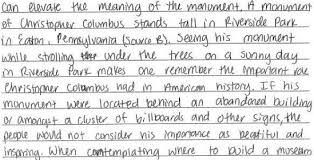 can elevate the meaning of the monument. A monument
of Christopher Columbus stands tall in Riverside Park
in Easton, Pennsylvania (Source B). Seeing his monument
while strolling under the trees on a sunny day
in Riverside Park makes one remember the important role
Christopher Columbus had in American history. If his
monument were located behind an abandoned building
or amongst a cluster of billboards and other signs, the
people would not consider his importance as beatiful and
inspiring. When contemplating where to build a museum